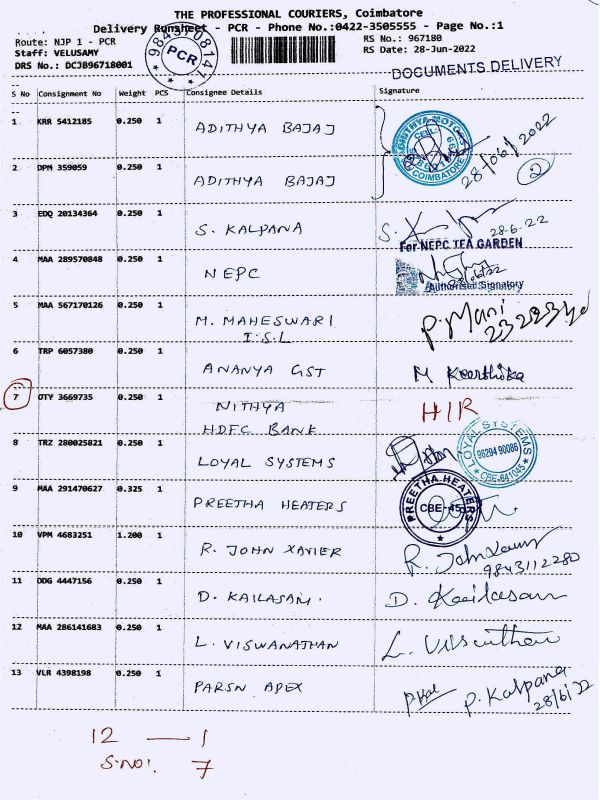 THE PROFESSIONAL COURIERS, Coimbatore
Delivery Runsheet - PCR - Phone No.:0422-3505555 - Page No.:1
Route: NJP 1 - PCR
RS No.: 967180
Staff: VELUSAMY
RS Date: 28-Jun-2022
DRS No.: DCJB96718001
PCR
DOCUMENTS DELIVERY
S No Consignment No Weight PCS Consignee Details Signature
1 KRR 5412185 0.250 1 ADITHYA BAJAJ
COIMBATORE
28/06/2022
2 DPM 359059 0.250 1 ADITHYA BAJAJ
2
3 EDQ 20134364 0.250 1 S. KALPANA
28-6-22
For NEPC TEA GARDEN
4 MAA 289570848 0.250 1 NEPC
Authorised Signatory
5 MAA 567170126 0.250 1 M. MAHESWARI
I.S.L
P. Mani
6 TRP 6057380 0.250 1 ANANYA GST M Keerthika
7 OTY 3669735 0.250 1 NITHYA
HDFC BANK
HIR
8 TRZ 280025821 0.250 1 LOYAL SYSTEMS
LOYAL SYSTEMS
96294 90086
CBE-641045
9 MAA 291470627 0.325 1 PREETHA HEATERS
PREETHA HEATERS
CBE-45
10 VPM 4683251 1.200 1 R. JOHN XAVIER R. John Xavier
9843112280
11 DDG 4447156 0.250 1 D. KAILASAM. D. Kailasam
12 MAA 286141683 0.250 1 L. VISWANATHAN L. Viswanathan
13 VLR 4398198 0.250 1 PARSN APEX P. Kalpana
28/6/22
12 — 1
S.NO: 7